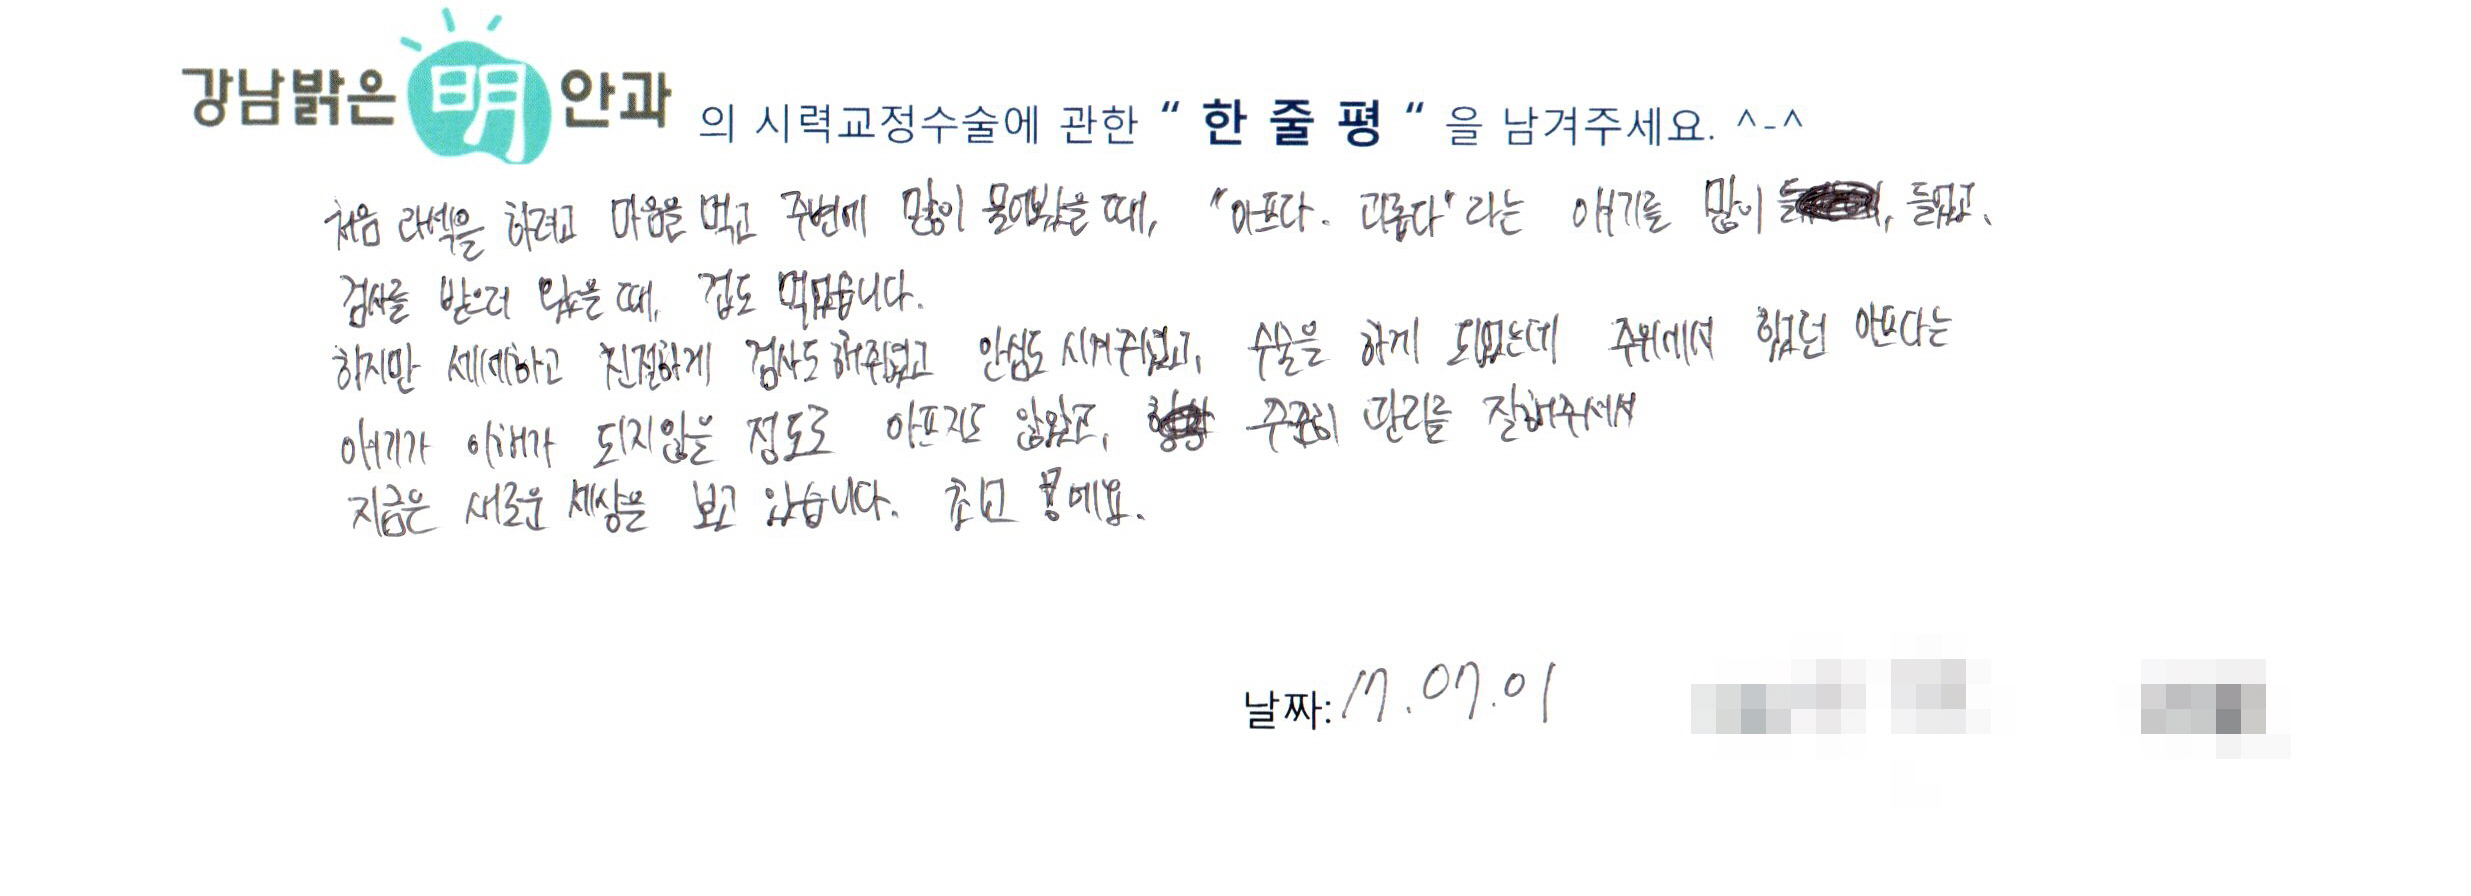 강남밝은 明 안과 의 시력교정수술에 관한 “ 한 줄 평 “ 을 남겨주세요. ^-^
처음 라섹을 하려고 마음을 먹고 주변에 많이 물어봤을 때, "아프다. 괴롭다"라는 얘기를 많이 들었고.
검사를 받으러 왔을 때, 겁도 먹었습니다.
하지만 세세하고 친절하게 검사도 해주셨고 안심도 시켜주셨고, 수술을 하게 되었는데 주위에서 했던 아프다는
얘기가 이해가 되지않을 정도로 아프지도 않았고, 꾸준히 관리를 잘해주셔서
지금은 새로운 세상을 보고 있습니다. 최고 예요.
날짜: 17.07.01